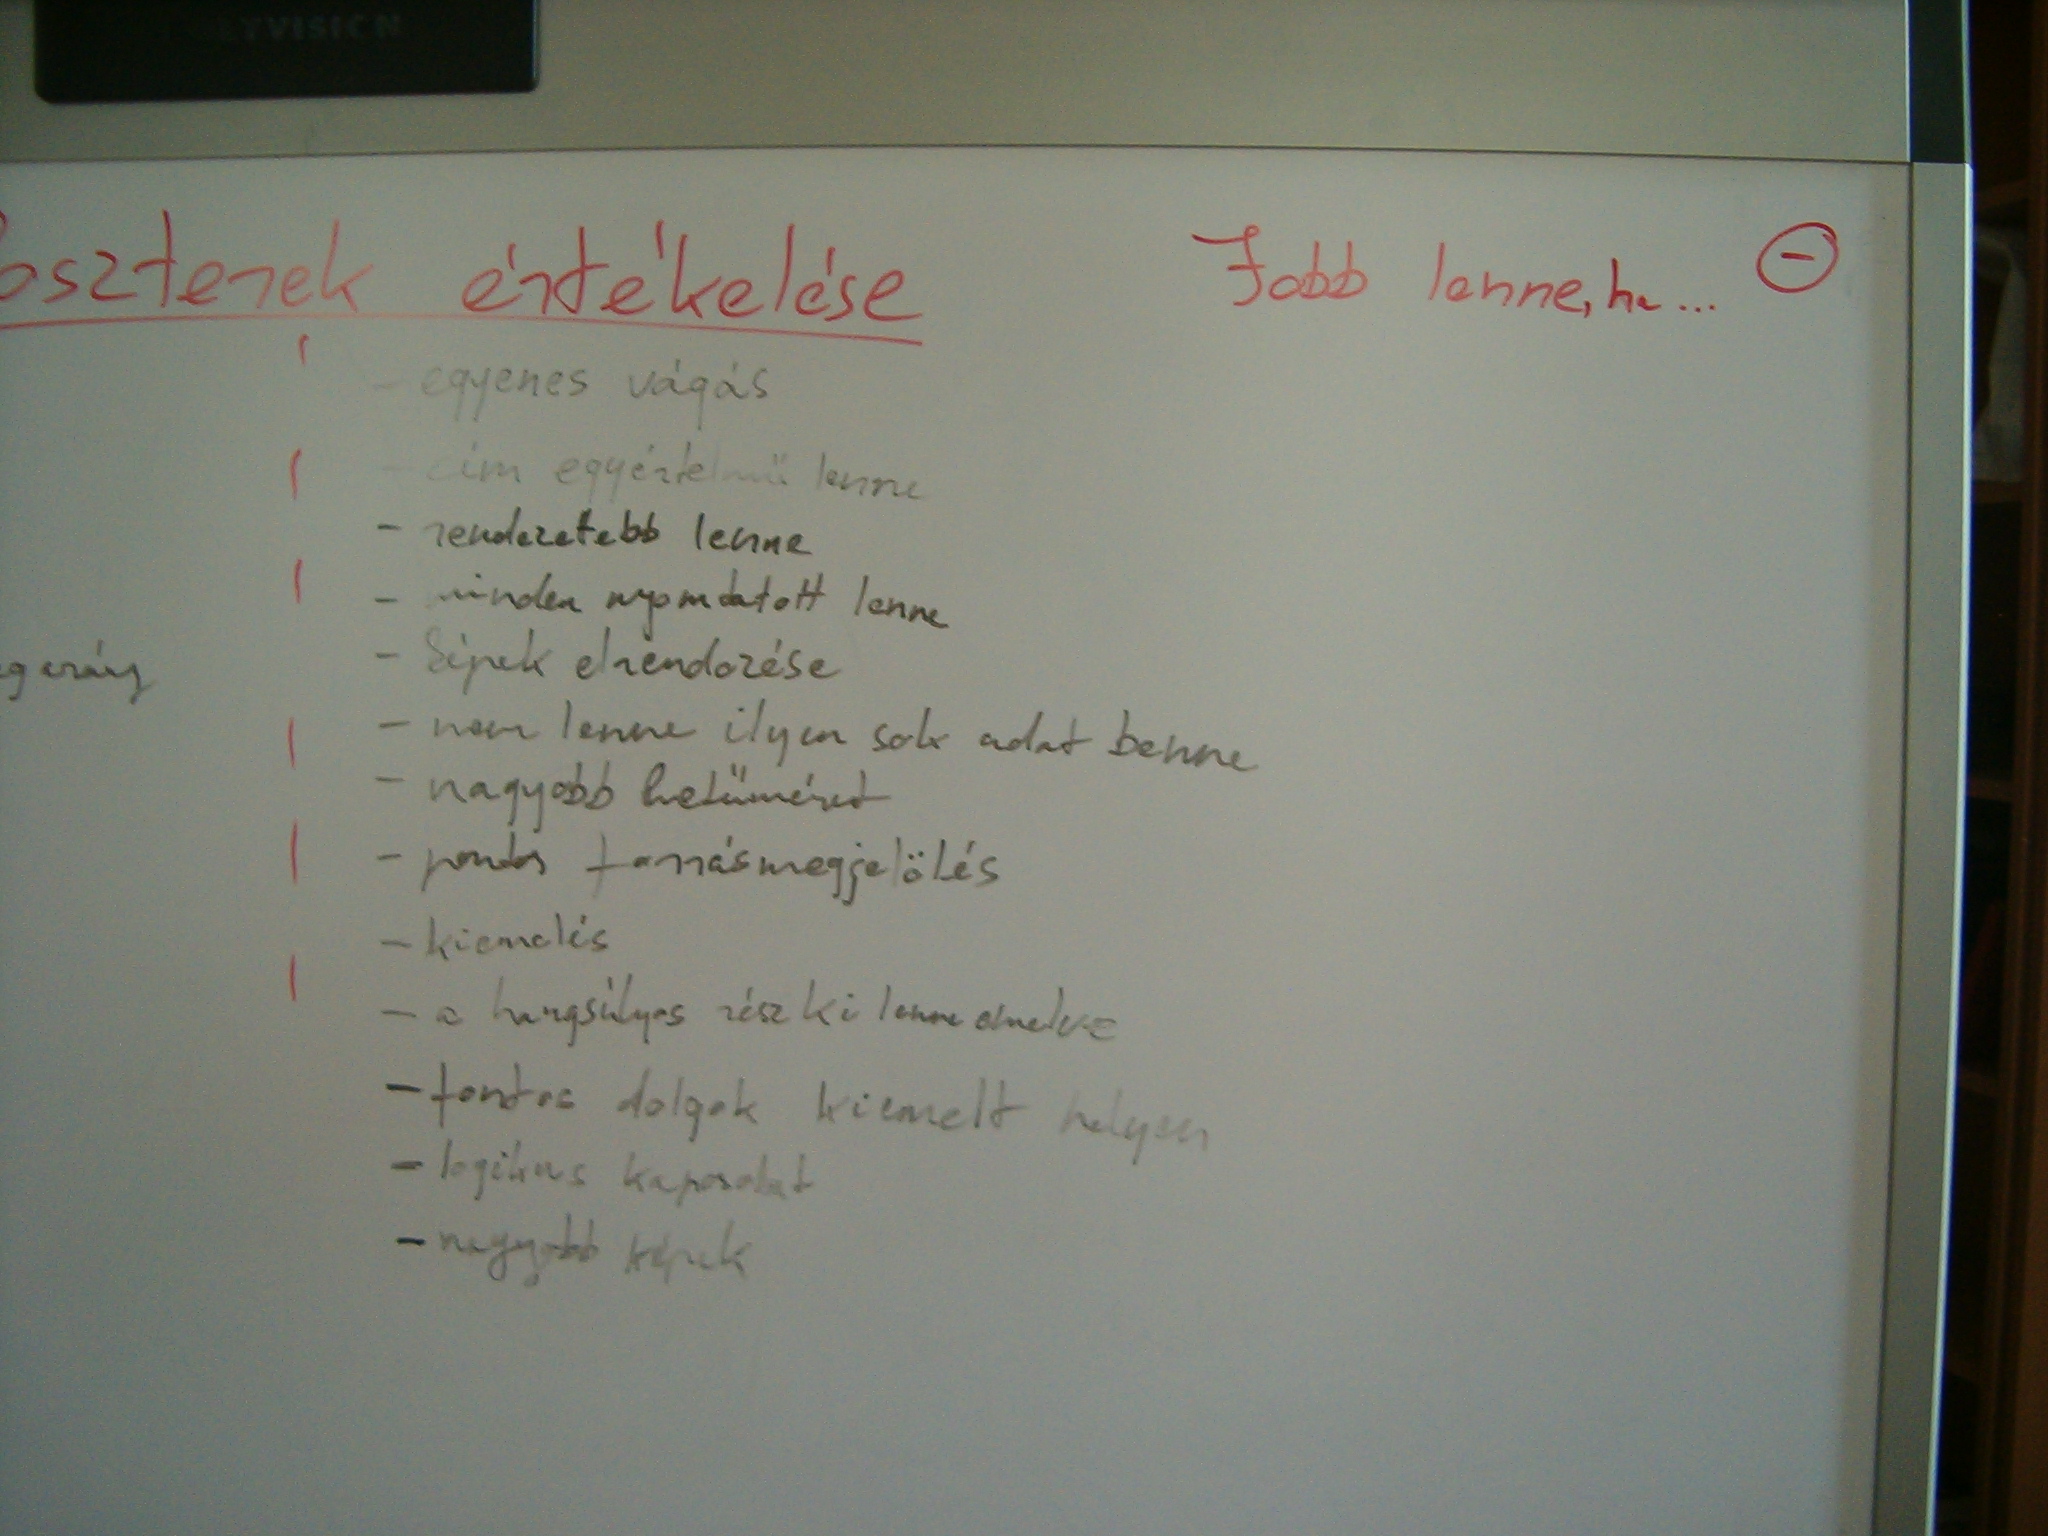 LYVISION
oszterek értékelése
Jobb lenne, ha... -
- egyenes vágás
- cím egyértelmű lenne
- rendezetebb lenne
- minden nyomdatott lenne
- képek elrendezése
- nem lenne ilyen sok adat benne
- nagyobb betűméret
- pontos forrásmegjelölés
- kiemelés
- a hangsúlyos rész ki lenne emelve
- fontos dolgok kiemelt helyen
- logikus kapcsolat
- nagyobb képek